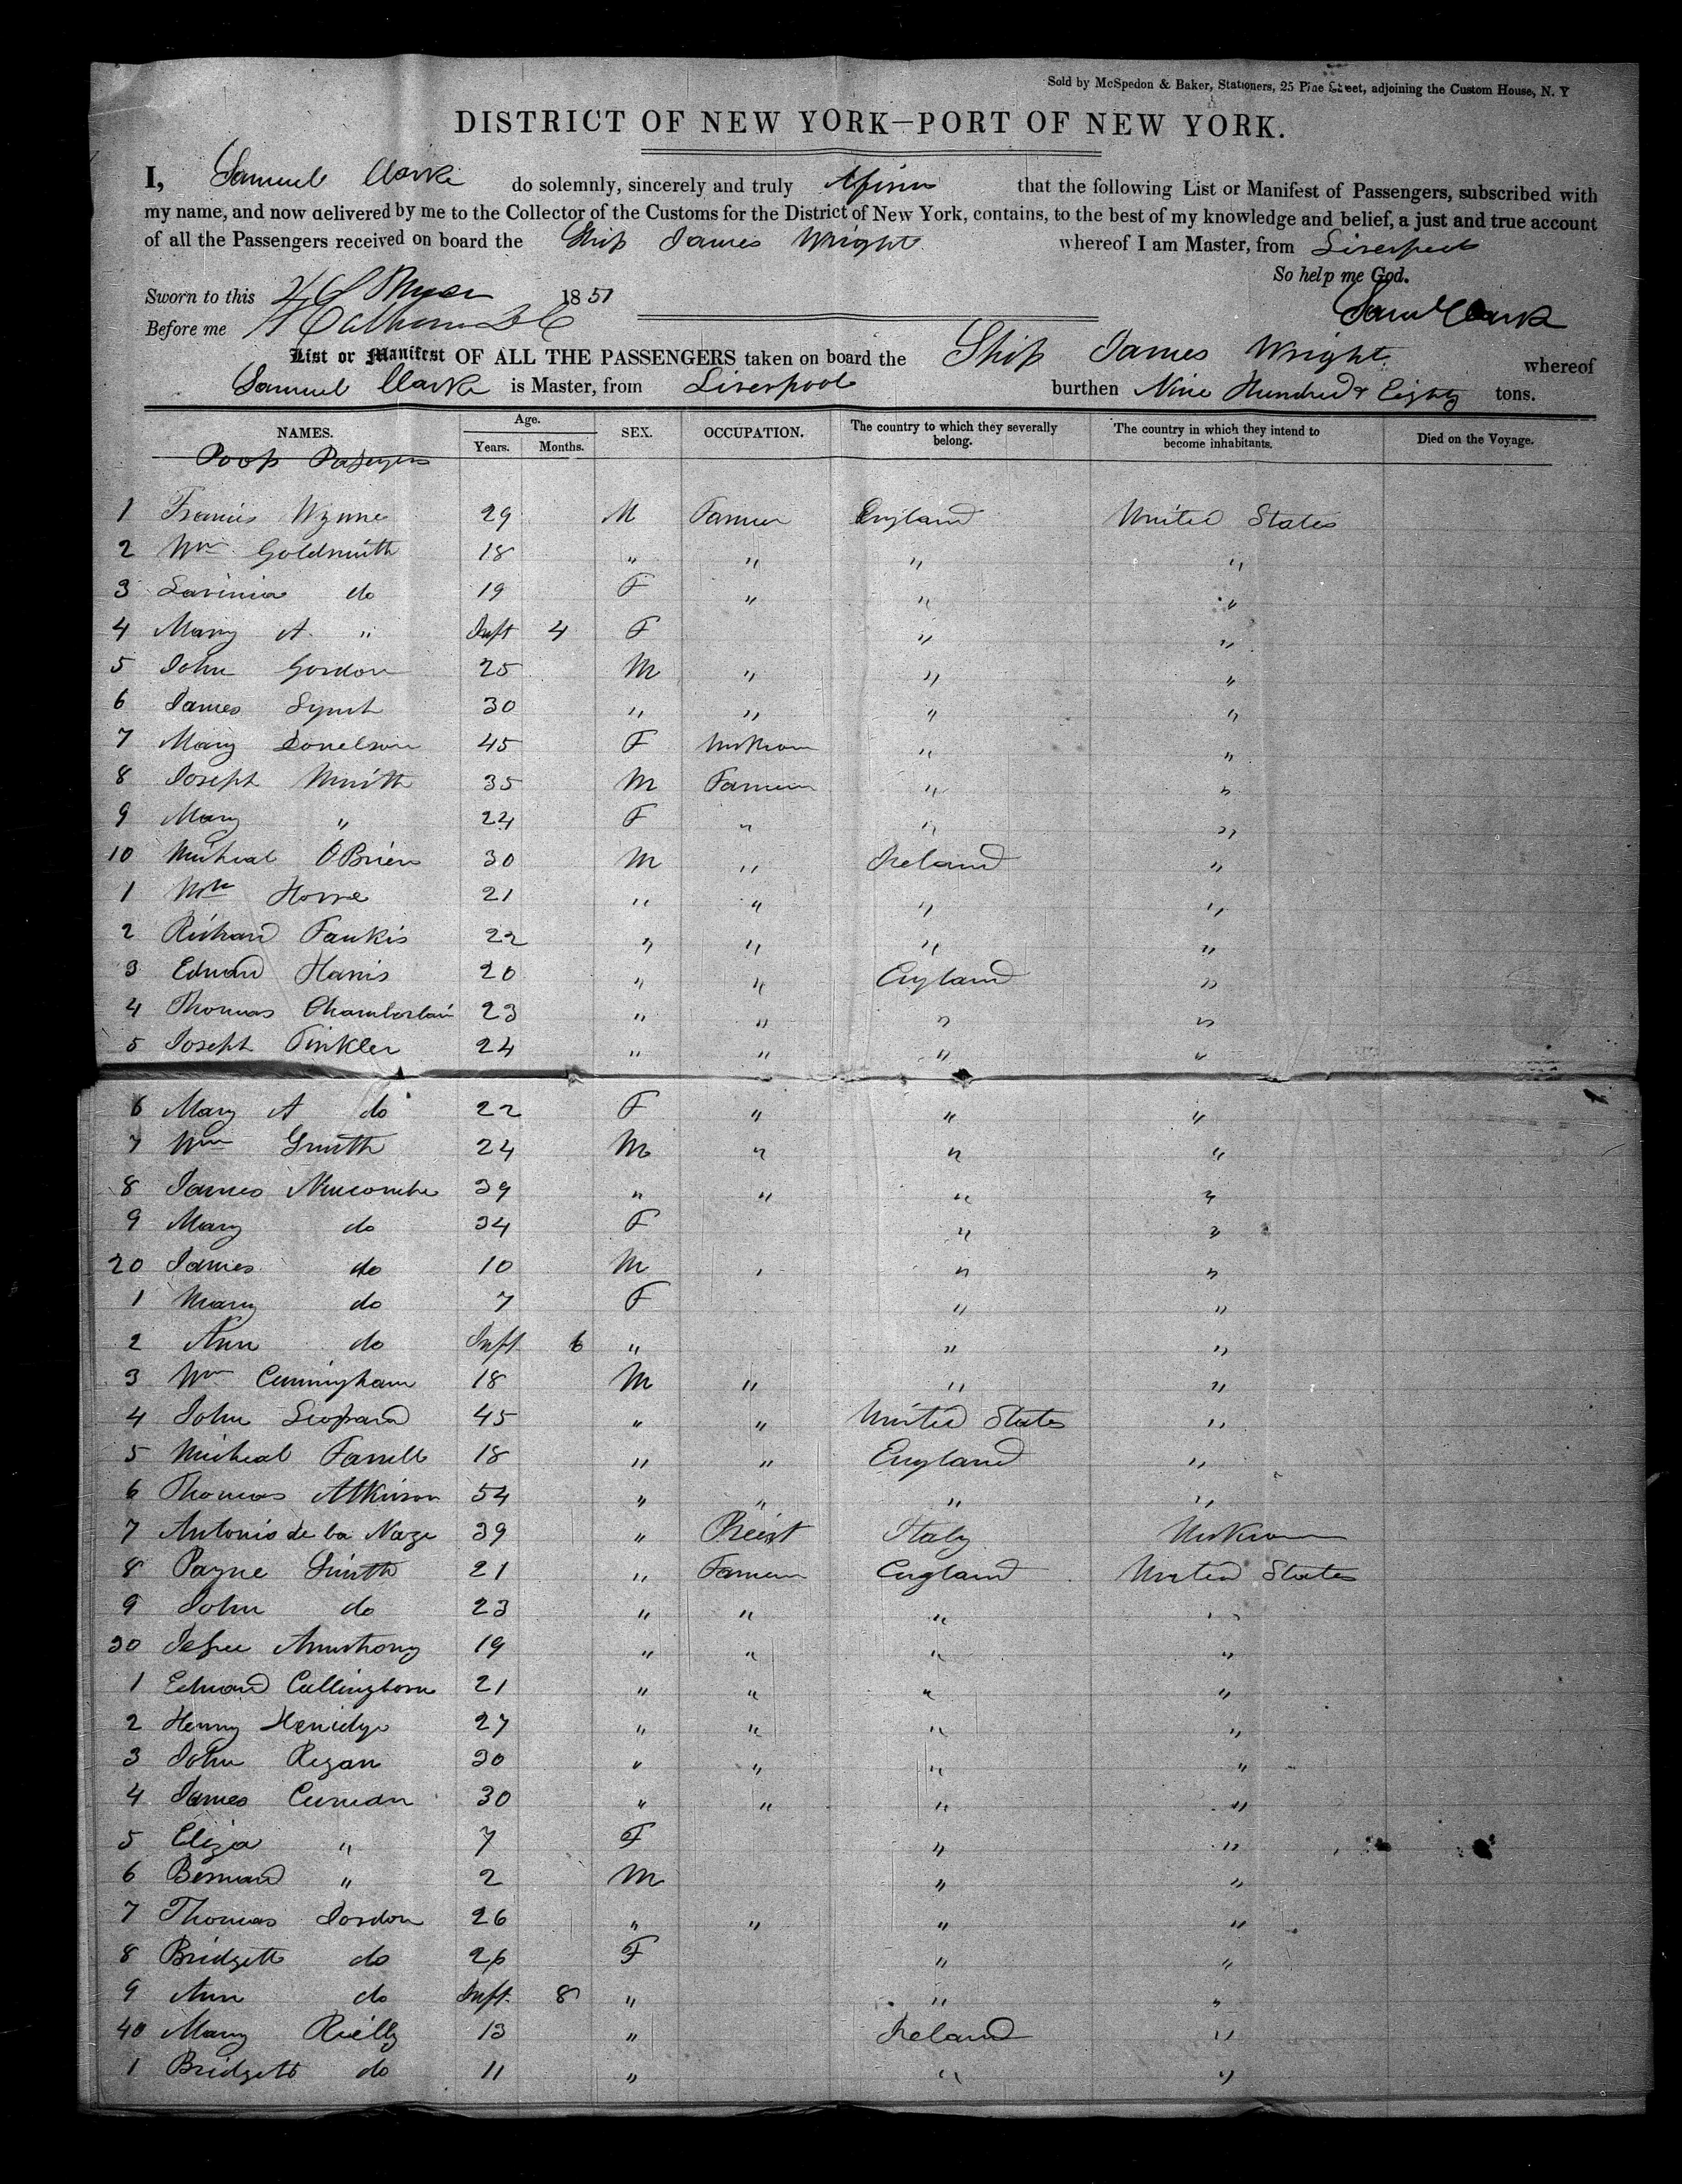 Sold by McSpedon & Baker, Stationers, 25 Pine Street, adjoining the Custom House, N. Y
DISTRICT OF NEW YORK—PORT OF NEW YORK.
I, Samuel Clarke do solemnly, sincerely and truly Affirm that the following List or Manifest of Passengers, subscribed with
my name, and now delivered by me to the Collector of the Customs for the District of New York, contains, to the best of my knowledge and belief, a just and true account
of all the Passengers received on board the Ship James Wright whereof I am Master, from Liverpool
So help me God.
Sworn to this 1851
Saml Clark
Before me
List or Manifest OF ALL THE PASSENGERS taken on board the Ship James Wright whereof
Samuel Clarke is Master, from Liverpool burthen Nine Hundred & Eighty tons.
NAMES. Age. Years. Months. SEX. OCCUPATION. The country to which they severally belong. The country in which they intend to become inhabitants. Died on the Voyage.
Poop Passengers
1 Francis Wynne 29 M Farmer England United States
2 Wm Goldsmith 18 " " " "
3 Lavinia do 19 F " " "
4 Mary A " Inft 4 F " "
5 John Gordon 25 M " " "
6 James Lynch 30 " " " "
7 Mary Donelson 45 F Unknown " "
8 Joseph Smith 35 M Farmer " "
9 Mary " 24 F " " "
10 Micheal O'Brien 30 M " Ireland "
1 Wm Horne 21 " " " "
2 Richard 22 " " " "
3 Edward Harris 20 " " England "
4 Thomas Chamberlain 23 " " " "
5 Joseph Tinkler 24 " " " "
6 Mary A do 22 F " " "
7 Wm Smith 24 M " " "
8 James Newcombe 39 " " " "
9 Mary do 34 F " "
20 James do 10 M " "
1 Mary do 7 F " "
2 Ann do Inft 6 " " "
3 Wm Cunningham 18 M " " "
4 John Leopard 45 " " United States "
5 Micheal Farrell 18 " " England "
6 Thomas Atkinson 54 " " " "
7 Antonio de la Naze 39 " Preist Italy Unknown
8 Payne Smith 21 " Farmer England United States
9 John do 23 " " " "
30 Armstrong 19 " " " "
1 Edward Cullingborn 21 " " " "
2 Henry 27 " " " "
3 John Regan 30 " " " "
4 James Curran 30 " " " "
5 Eliza " 7 F " "
6 Bernard " 2 M " "
7 Thomas Jordon 26 " " " "
8 Bridgett do 26 F " "
9 Ann do Inft. 8 " " "
40 Mary Rielly 13 " Ireland "
1 Bridgett do 11 " " "